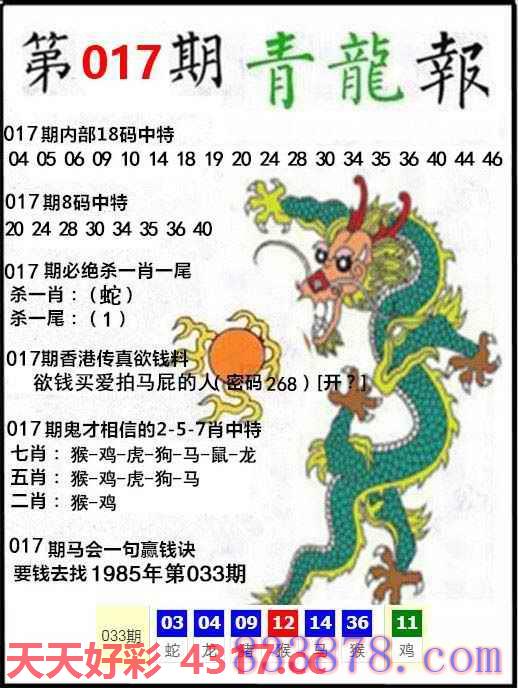 第017期青龍報
017期内部18码中特
04 05 06 09 10 14 18 19 20 24 28 30 34 35 36 40 44 46
017期8码中特
20 24 28 30 34 35 36 40
017期必绝杀一肖一尾
杀一肖：（蛇）
杀一尾：（1）
017期香港传真欲钱料
欲钱买爱拍马屁的人（密码268）[开？]
017期鬼才相信的2-5-7肖中特
七肖：猴-鸡-虎-狗-马-鼠-龙
五肖：猴-鸡-虎-狗-马
二肖：猴-鸡
017期马会一句赢钱诀
要钱去找1985年第033期
033期 03 04 09 12 14 36 11
蛇 龙 猪 猴 马 猴 鸡
天天好彩 4317.cc 833878.com